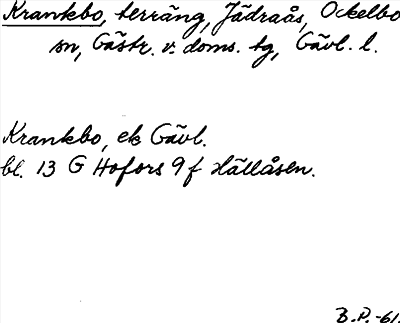 Krankbo, terräng, Jädraås, Ockelbo
sn, Gästr. v. doms. tg, Gävl. l.
Krankbo, ek Gävl.
bl. 13 G Hofors 9 f Hällåsen.
B.P.-61.